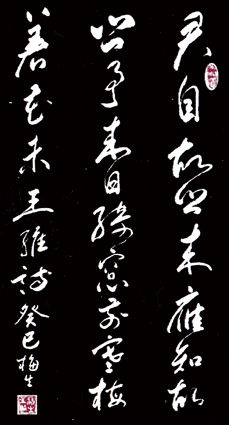 君自故鄉來應知故
鄉事來日綺窓前寒梅
着花未王維詩癸巳梅生